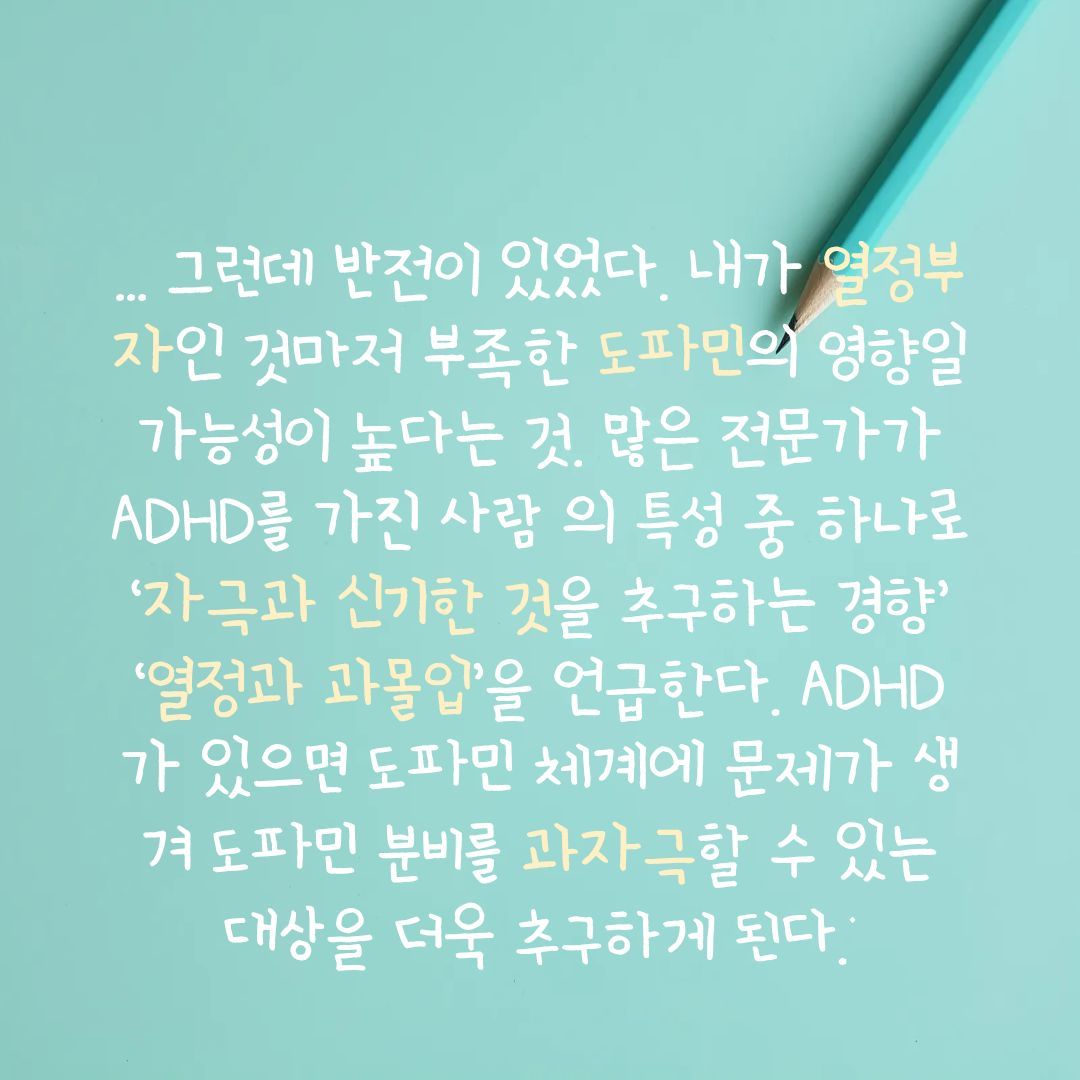 ... 그런데 반전이 있었다. 내가 열정부
자인 것마저 부족한 도파민의 영향일
가능성이 높다는 것. 많은 전문가가
ADHD를 가진 사람 의 특성 중 하나로
‘자극과 신기한 것을 추구하는 경향’
‘열정과 과몰입’을 언급한다. ADHD
가 있으면 도파민 체계에 문제가 생
겨 도파민 분비를 과자극할 수 있는
대상을 더욱 추구하게 된다.